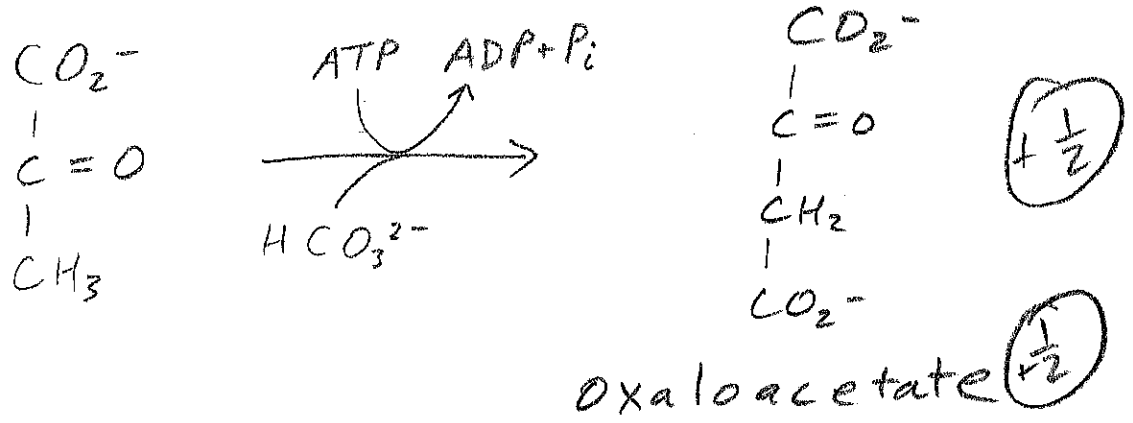 CO₂⁻
|
C=O
|
CH₃
ATP ADP+Pi
HCO₃²⁻
CO₂⁻
|
C=O
|
CH₂
|
CO₂⁻
+ 1/2
oxaloacetate
+ 1/2